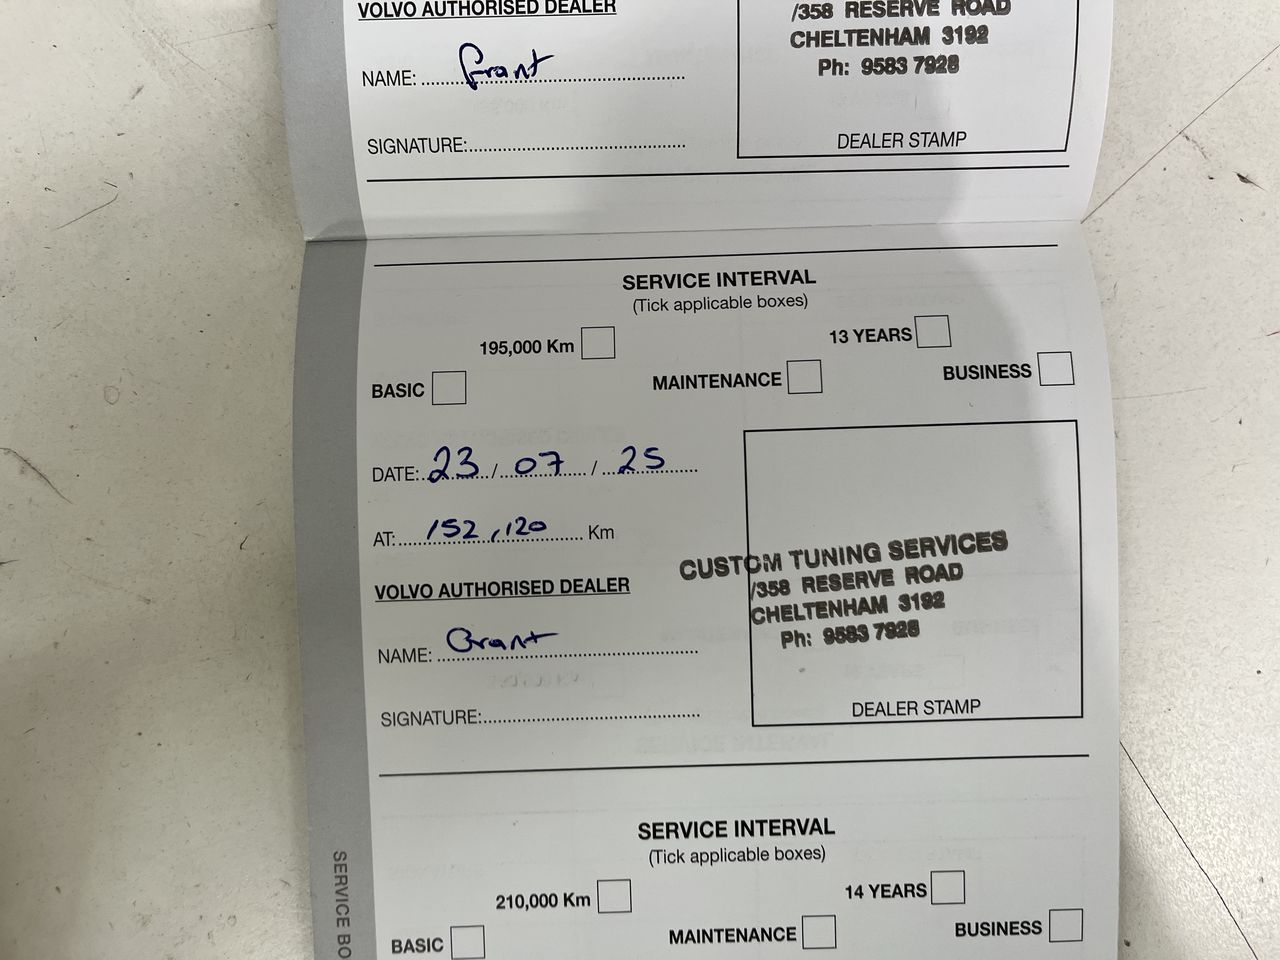 VOLVO AUTHORISED DEALER
NAME: Grant
SIGNATURE:
/358 RESERVE ROAD
CHELTENHAM 3192
Ph: 9583 7928
DEALER STAMP
SERVICE INTERVAL
(Tick applicable boxes)
195,000 Km 13 YEARS
BASIC MAINTENANCE BUSINESS
DATE: 23 / 07 / 25
AT: 152,120 Km
VOLVO AUTHORISED DEALER
NAME: Grant
SIGNATURE:
CUSTOM TUNING SERVICES
/358 RESERVE ROAD
CHELTENHAM 3192
Ph: 9583 7928
DEALER STAMP
SERVICE INTERVAL
(Tick applicable boxes)
210,000 Km 14 YEARS
BASIC MAINTENANCE BUSINESS
SERVICE BO